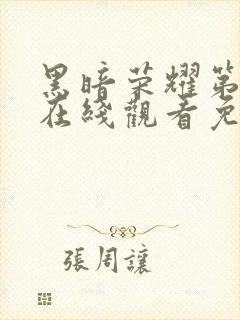 黑暗荣耀第
在线觀看免
張周讓